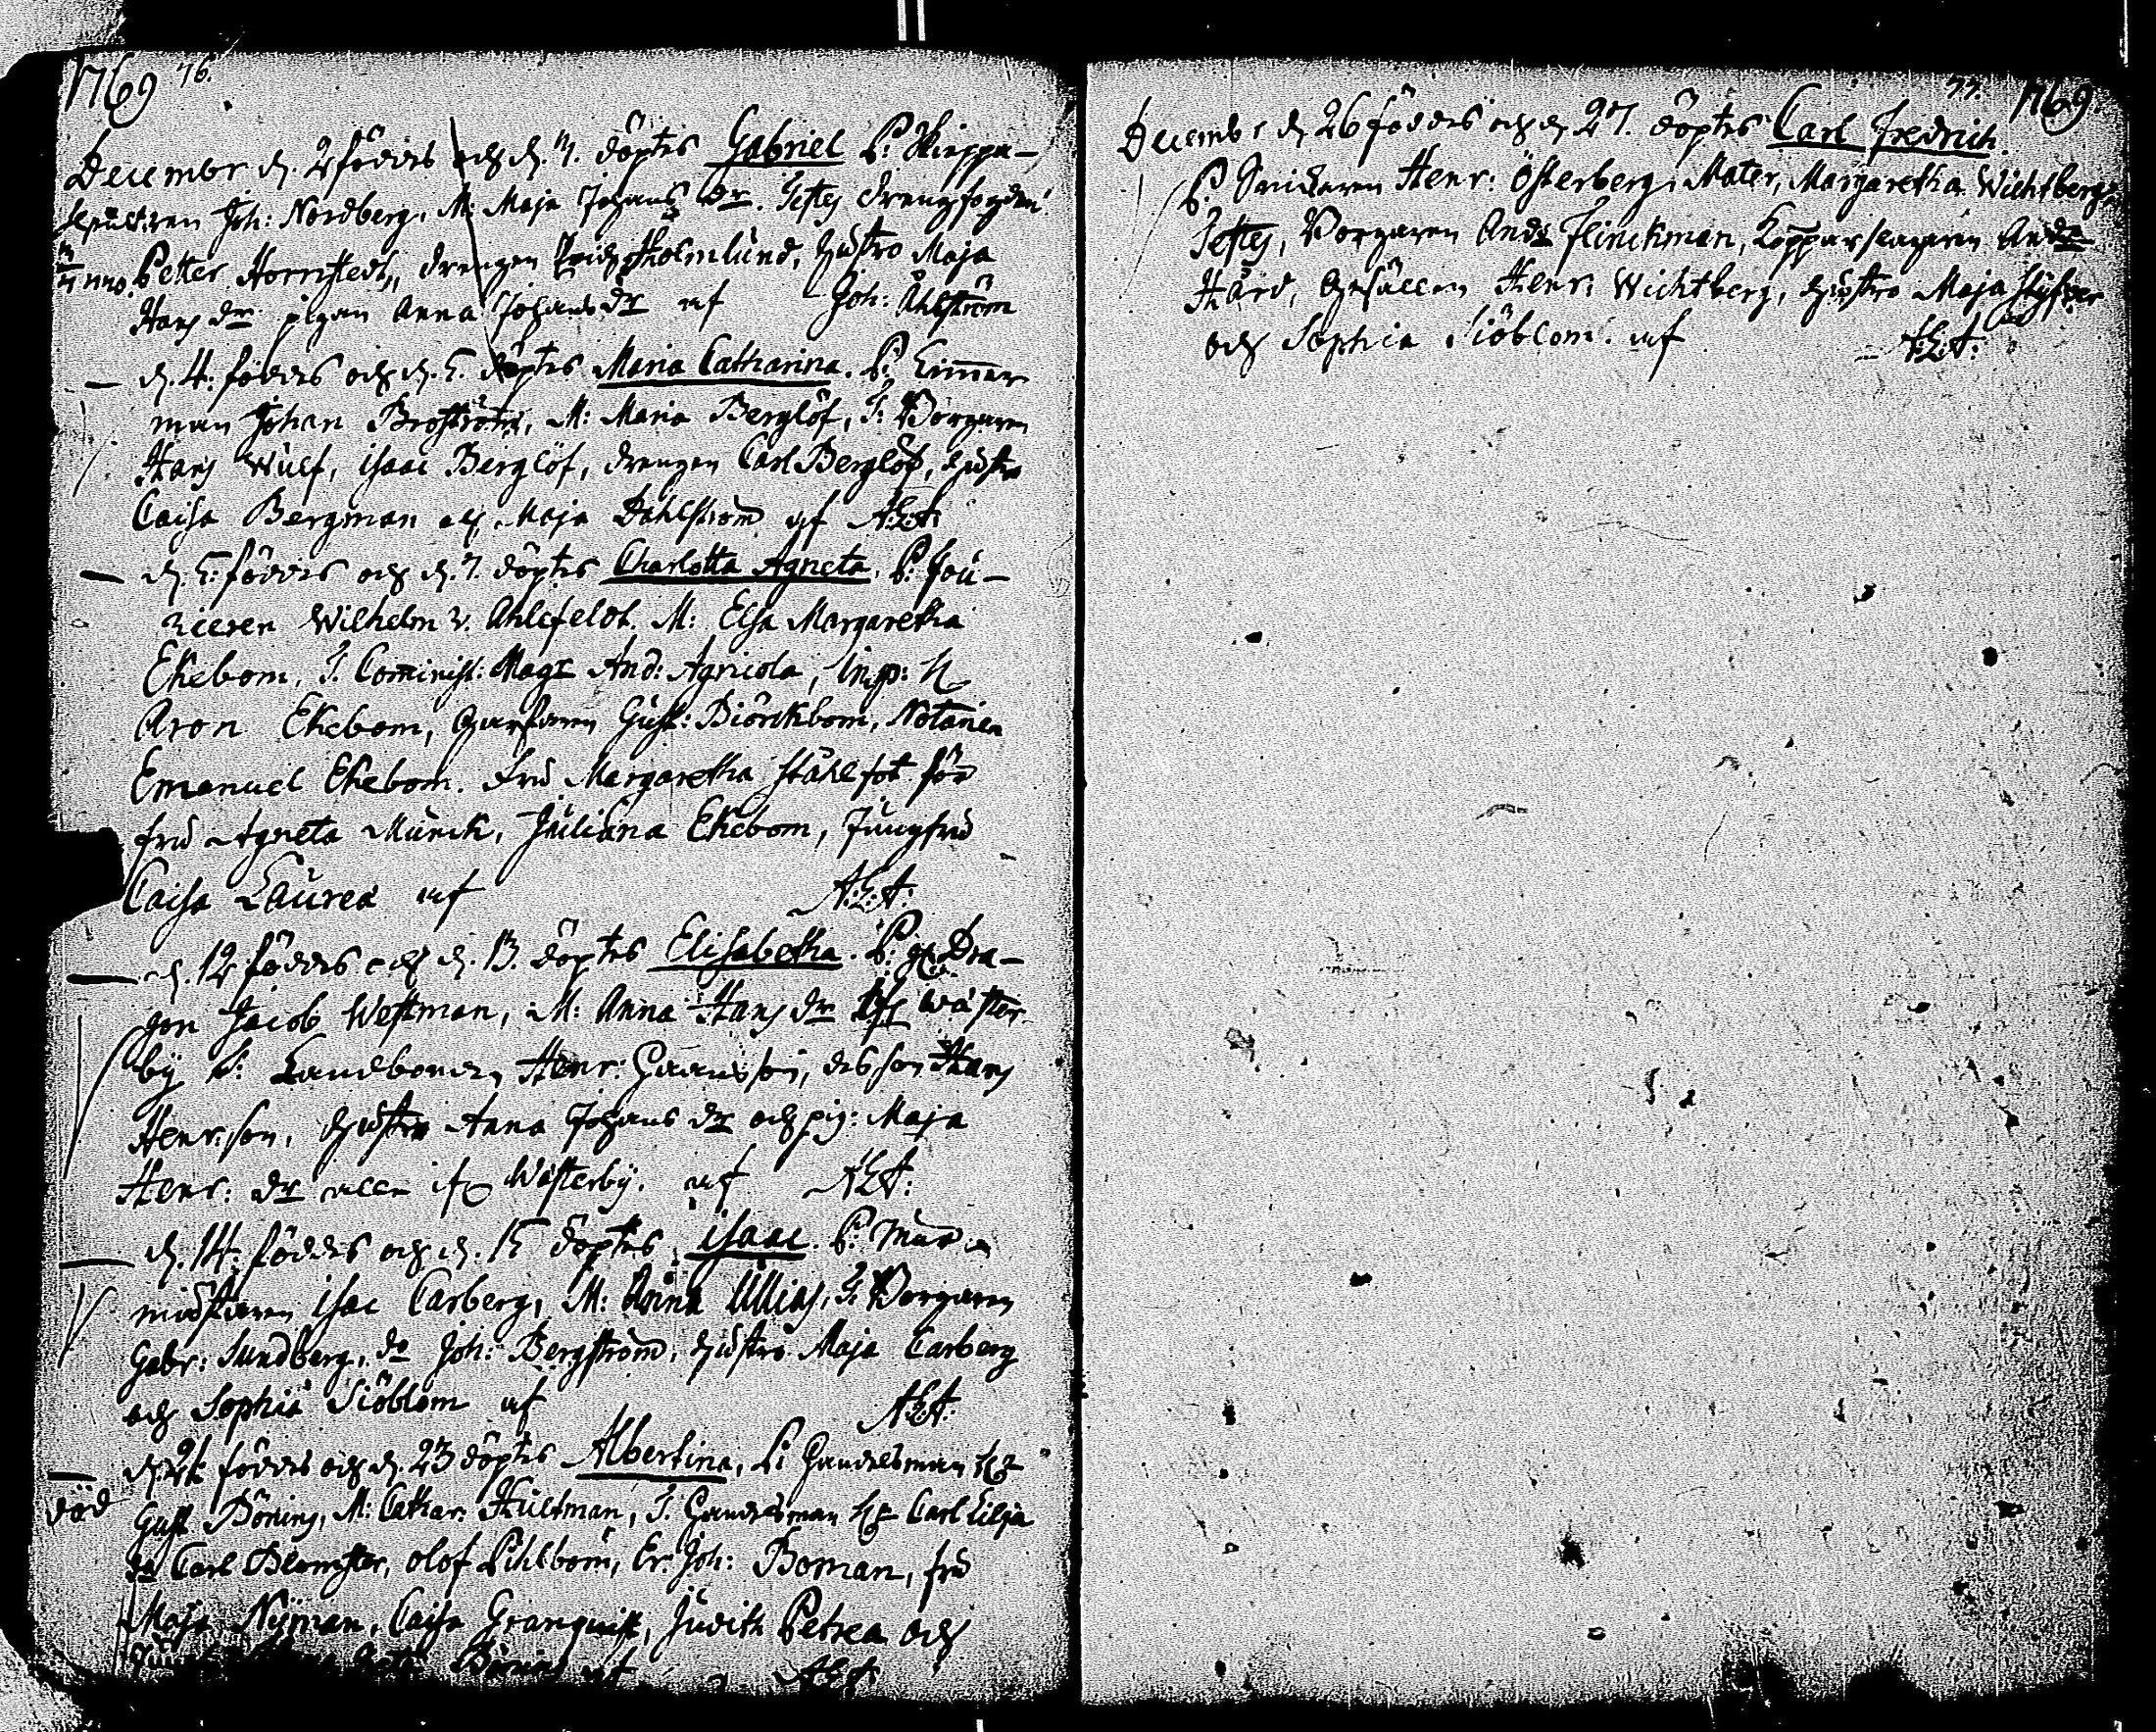 1769 76.
December d. 2 föddes och d. 3. döptes Gabriel P: Skeppa-
Joh: Nordberg, M: Maja Johans dr. Testes
Petter Hornstedt, drengen Holmlund, hustro Maja
Hans dr pigan Anna Johans dr uf Joh: Åhlström
— d. 4. föddes och d. 5. döptes Maria Catharina. P: Timmer
man Johan Broström, M: Maria Berglöf, T: Borgaren
Hans Wulf, isaac Berglöf, drengen Carl Berglöf, hustro
Caisa Bergman och Maja Dahlström uf A:L:A:
— d. 5. föddes och d. 7. döptes Charlotta Agneta. P: Fou-
rieren Wilhelm v. Ahlefeldt. M: Elsa Margaretha
Ekebom, T. Comminist: Magr And: Agricola, Insp: H
Aron Ekebom, Gust: Biörckbom, Notarien
Emanuel Ekebom. fru Margaretha Stålfot
fru Agneta Munck, Juliana Ekebom, Jungfru
Caisa Laurea uf A:L:A:
— d. 12 föddes och d. 13. döptes Elisabetha. P: Dra-
gon Jacob Westman, M: Anna Hans dr Wäster
by T: Landbonden Henr: son Hans
Henr:son, hustro Anna Johans dr och pig: Maja
Henr: dr Westerby. uf A:L:A:
— d. 14. föddes och d. 15 döptes isaac. P: Mur
mästaren isac Carberg, M: T: Borgaren
Gabr: Sundberg, do Joh: Bergström, hustro Maja Carberg
och Sophia Siöblom uf A:L:A:
— d. 21 föddes och d. 23 döptes Albertina, P: Handelsman Hr
död Gust Böning, M: Cathar: Hultman, T: Handelsman Hr Carl Lilja
do Carl Blomster, olof Pihlbom, Er: Joh: Boman, fru
Maja Nyman, Caisa Granquist, Judith Petrea och
uf A:L:A:
77. 1769
December d. 26 föddes och d. 27. döptes Carl Fredrich.
P. Henr: Österberg, Mater, Margaretha Wichtberg,
Testes, Borgaren And: Flinckman, Kopparslagaren Andr
Hård, Gesällen Henr: Wichtberg, hustro Maja
och Sophia Siöblom. uf A:L:A: